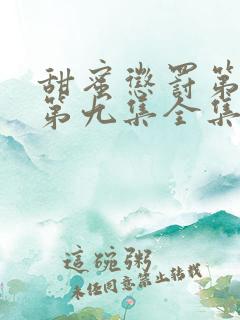 甜蜜惩罚第
第九集全集
這碗粥
未经同意禁止转载